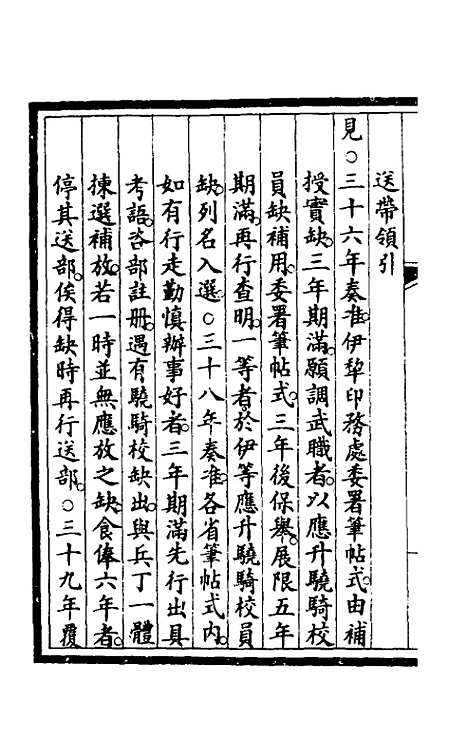 送帶領引
見○三十六年奏准伊犂印務處委署筆帖式由補
授實缺三年期滿願調武職者以應升驍騎校
員缺補用委署筆帖式三年後保舉展限五年
期滿再行查明一等者於伊等應升驍騎校員
缺列名入選○三十八年奏准各省筆帖式內
如有行走勤慎辦事好者三年期滿先行出具
考語咨部註冊遇有驍騎校缺出與兵丁一體
揀選補放若一時並無應放之缺食俸六年者
停其送部俟得缺時再行送部○三十九年覆